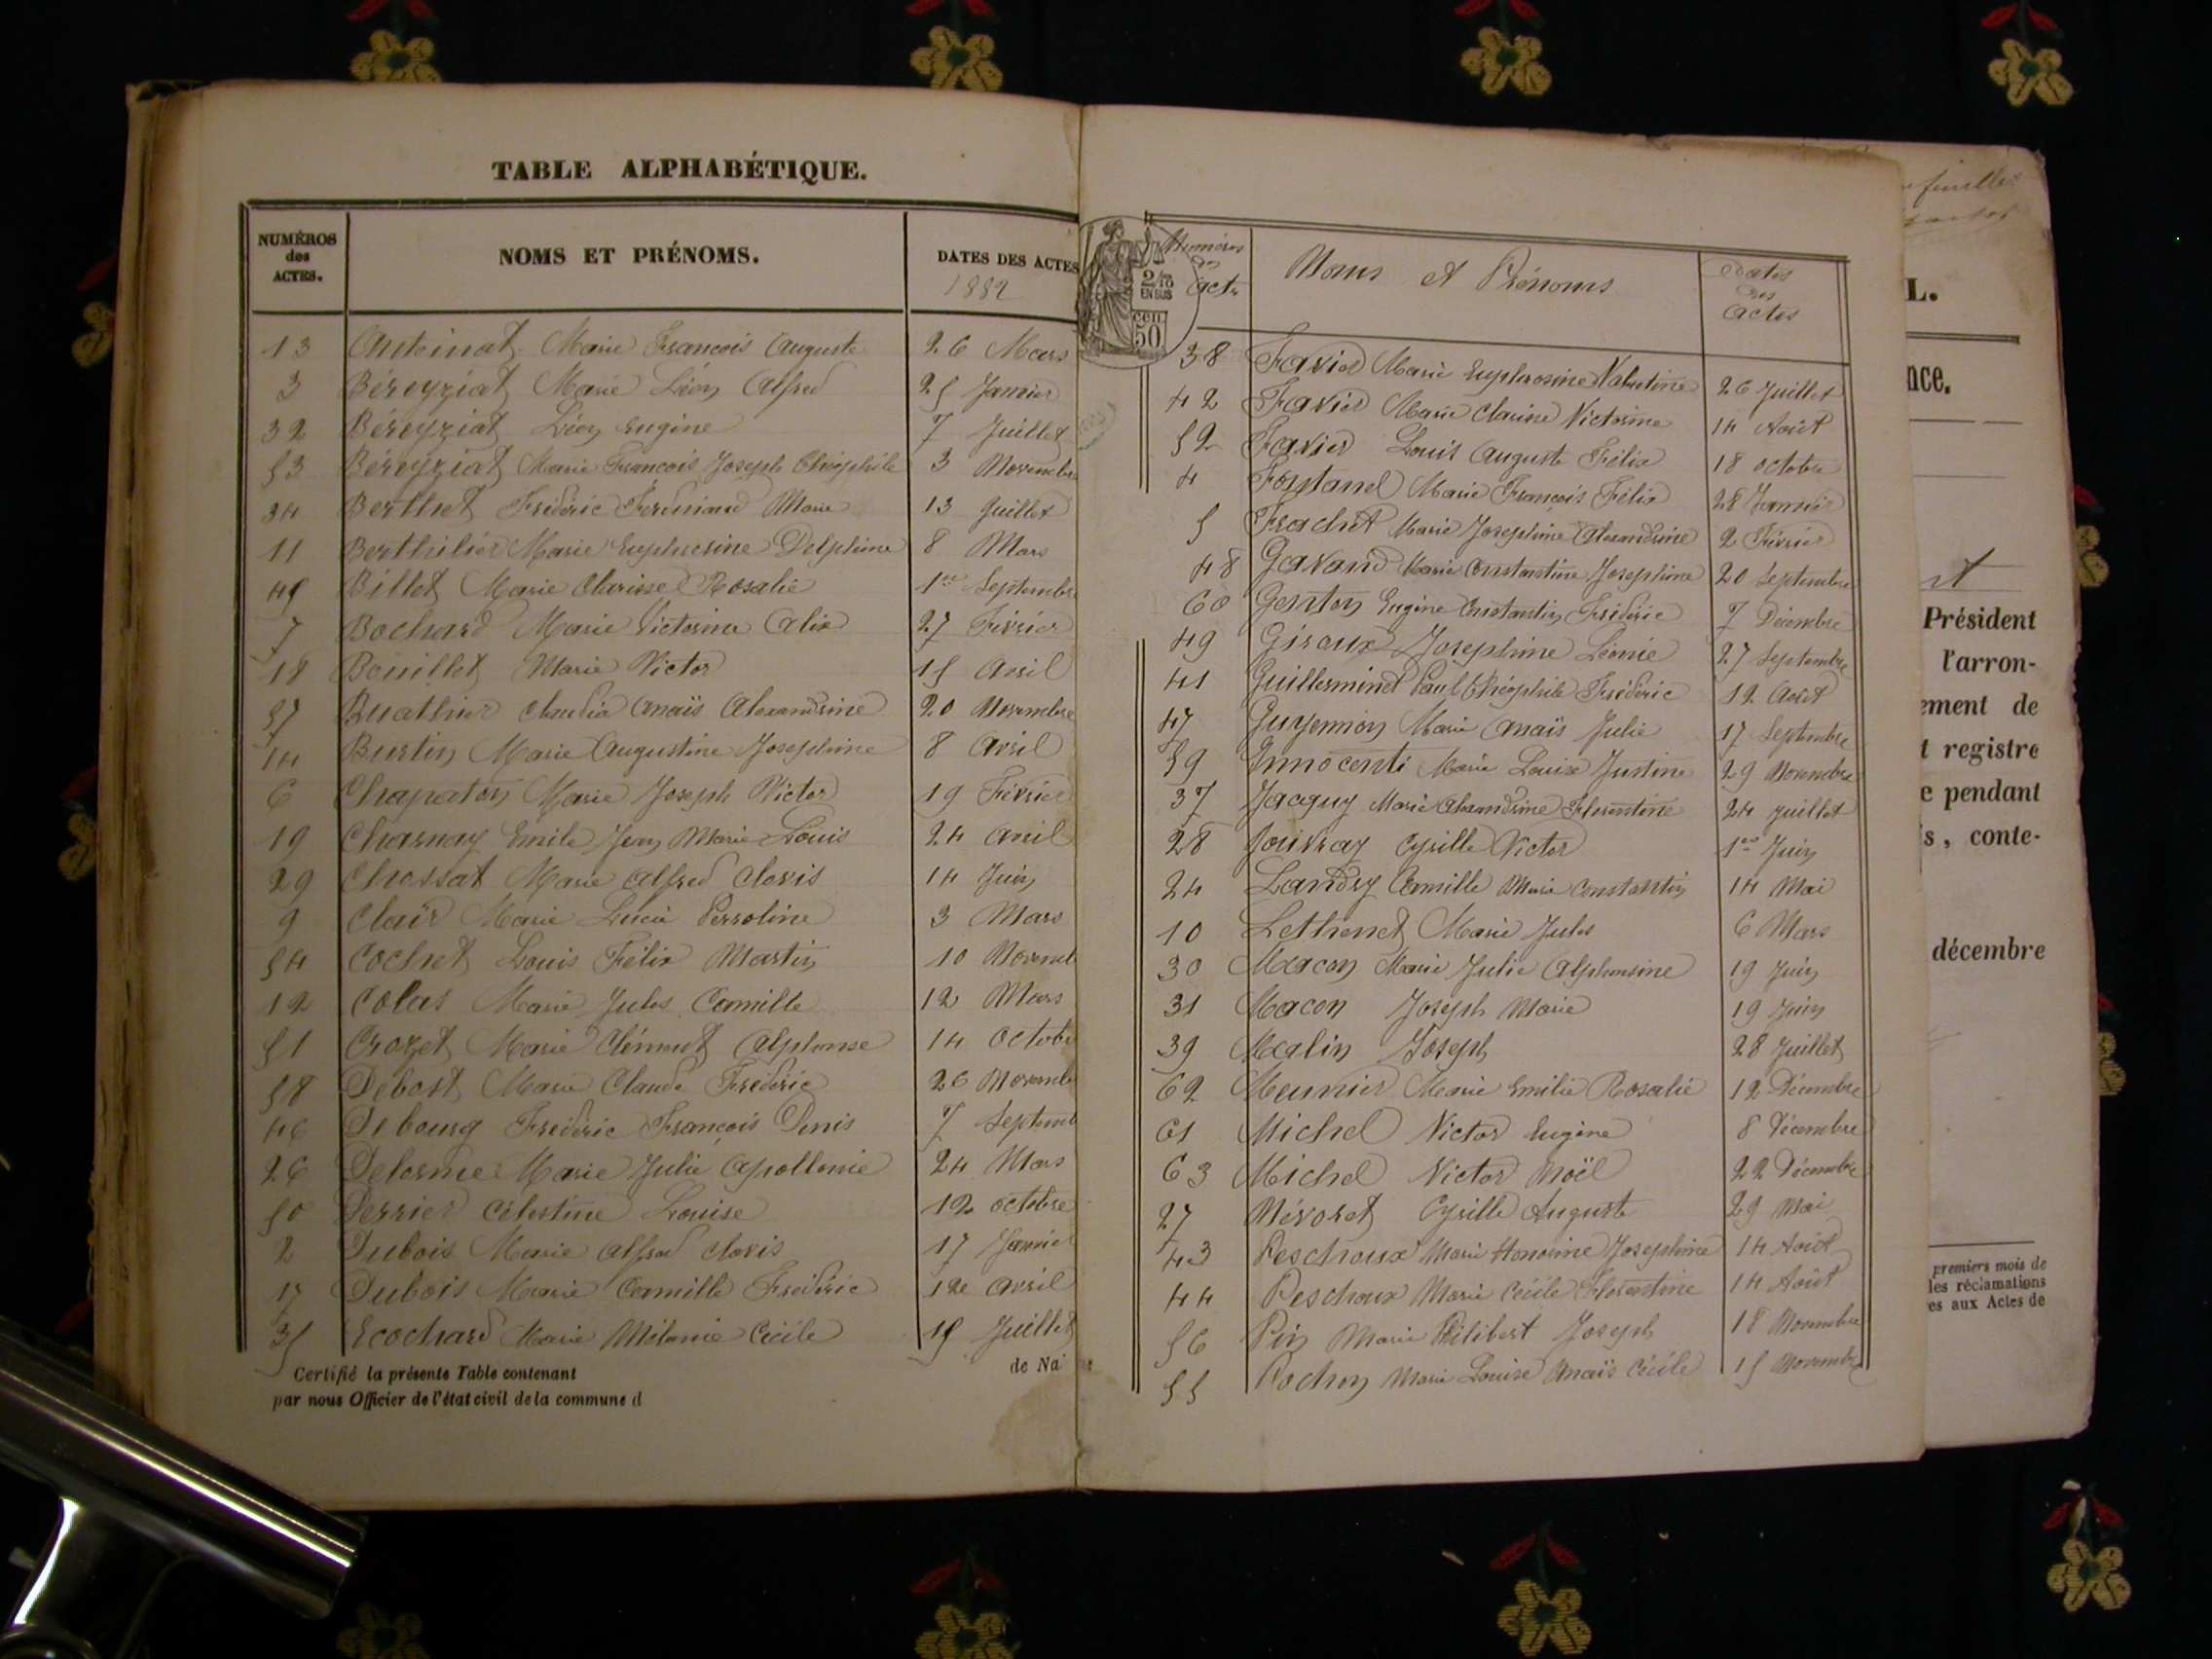 TABLE ALPHABÉTIQUE.
NUMÉROS des ACTES. NOMS ET PRÉNOMS. DATES DES ACTES
1882
13 Antoinat Marie François Auguste 26 Mars
3 Béreyziat Marie Léon Alfred 25 Janvier
32 Béreyziat Léon Eugène 7 Juillet
53 Béreyziat Marie François Joseph Théophile 3 Novembre
34 Berthet Frédéric Ferdinand Marie 13 Juillet
11 Berthelier Marie Euphrosine Delphine 8 Mars
45 Billet Marie Clarisse Rosalie 1er Septembre
7 Bochard Marie Victorine Alix 27 Février
18 Bouillet Marie Victor 15 Avril
57 Buathier Claudia Anaïs Alexandrine 20 Novembre
14 Burtin Marie Augustine Josephine 8 Avril
6 Chapaton Marie Joseph Victor 19 Février
19 Charnay Emile Jean Marie Louis 24 Avril
29 Chossat Marie Alfred Clovis 14 Juin
9 Clair Marie Lucie Perroline 3 Mars
54 Cochet Louis Félix Martin 10 Novemb
12 Colas Marie Jules Camille 12 Mars
51 Crozet Marie Clément Alphonse 14 Octob
58 Debost Marie Claude Frédéric 26 Novemb
46 Debourg Frédéric François Denis 7 Septemb
26 Delorme Marie Julie Apollonie 24 Mars
50 Perrier Célestine Louise 12 Octobre
2 Dubois Marie Alfred Clovis 17 Janvie
17 Dubois Marie Camille Frédéric 12 Avril
35 Ecochard Marie Mélanie Cécile 15 Juillet
Certifié la présente Table contenant de Na
par nous Officier de l'état civil de la commune d
2/10
EN SUS
CEN.
50
Numéros des Actes Noms et Prénoms Dates des Actes
38 Favier Marie Euphrosine Valentine 26 Juillet
42 Favier Marie Clarisse Victorine 14 Août
52 Favier Louis Auguste Félix 18 Octobre
4 Fontanel Marie François Félix 28 Janvier
5 Frachet Marie Josephine Alexandrine 2 Février
48 Gavand Marie Constantine Josephine 20 Septembre
60 Genton Eugène Constantin Frédéric 7 Décembre
49 Giroux Josephine Léonie 27 Septembre
41 Guillerminet Paul Théophile Frédéric 12 Août
47 Guyennon Marie Anaïs Julie 17 Septembre
59 Innocenti Marie Louise Justine 29 Novembre
37 Jacquy Marie Alexandrine Florentine 24 Juillet
28 Jouvray Cyrille Victor 1er Juin
24 Landry Camille Marie Constantin 14 Mai
10 Lethenet Marie Jules 6 Mars
30 Macon Marie Julie Alphonsine 19 Juin
31 Macon Joseph Marie 19 Juin
39 Malin Joseph 28 Juillet
62 Meunier Marie Emilie Rosalie 12 Décembre
61 Michel Victor Eugène 8 Décembre
63 Michel Victor Noël 22 Décembre
27 Névoret Cyrille Auguste 29 Mai
43 Peschoux Marie Honorine Josephine 14 Août
44 Peschoux Marie Cécile Florentine 14 Août
56 Pin Marie Philibert Joseph 18 Novembre
55 Pochon Marie Louise Anaïs Cécile 15 Novembre
L.
nce.
Président
l'arron-
ement de
t registre
e pendant
s, conte-
décembre
premiers mois de
les réclamations
es aux Actes de